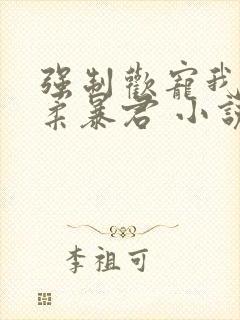 强制歡寵我
柔暴君 小說
李祖可